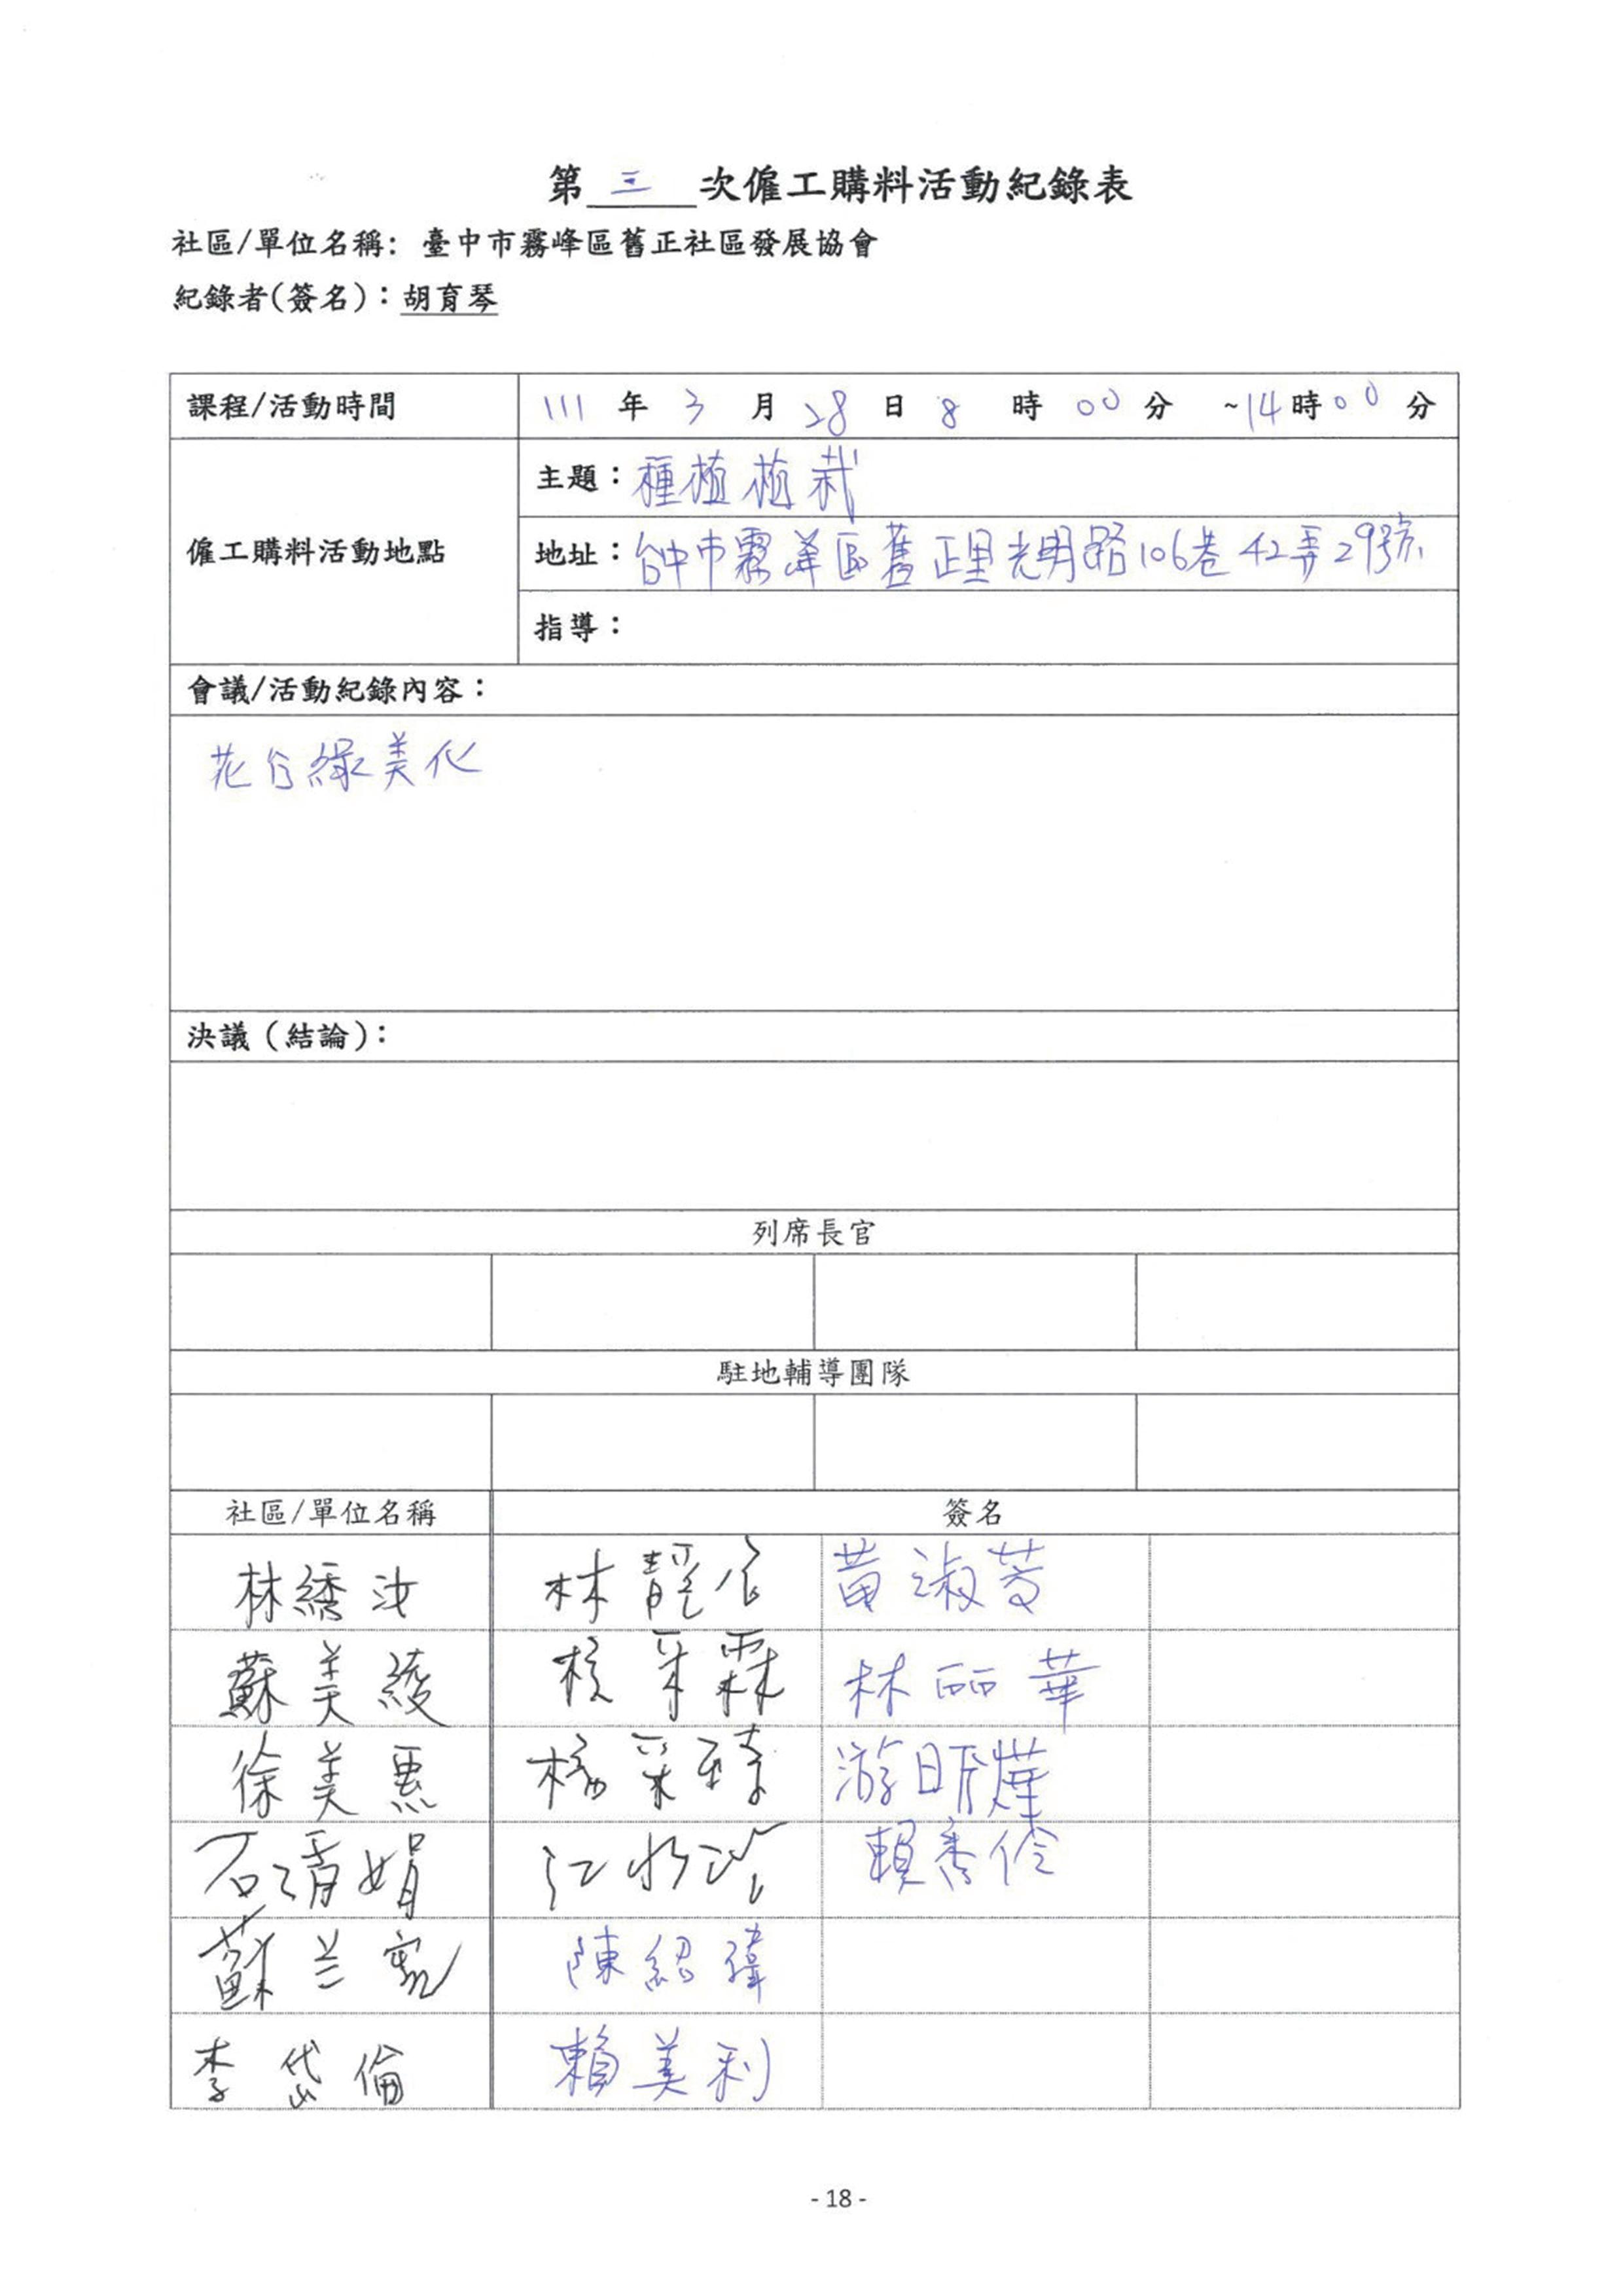 第 三 次僱工購料活動紀錄表
社區/單位名稱: 臺中市霧峰區舊正社區發展協會
紀錄者(簽名)：胡育琴
課程/活動時間 111 年 3 月 28 日 8 時 00 分 ~14 時 00 分
僱工購料活動地點
主題：種植植栽
地址：台中市霧峰區舊正里光明路106巷42弄29號
指導：
會議/活動紀錄內容：
花台綠美化
決議（結論）：
列席長官
駐地輔導團隊
社區/單位名稱 簽名
林繡汝 林靜 黃淑芬
蘇美綾 霖 林丽華
徐美惠 楊采臻 游 燁
石清娟 江 賴香伶
蘇兰 陳紹瑋
李岱倫 賴美利
- 18 -